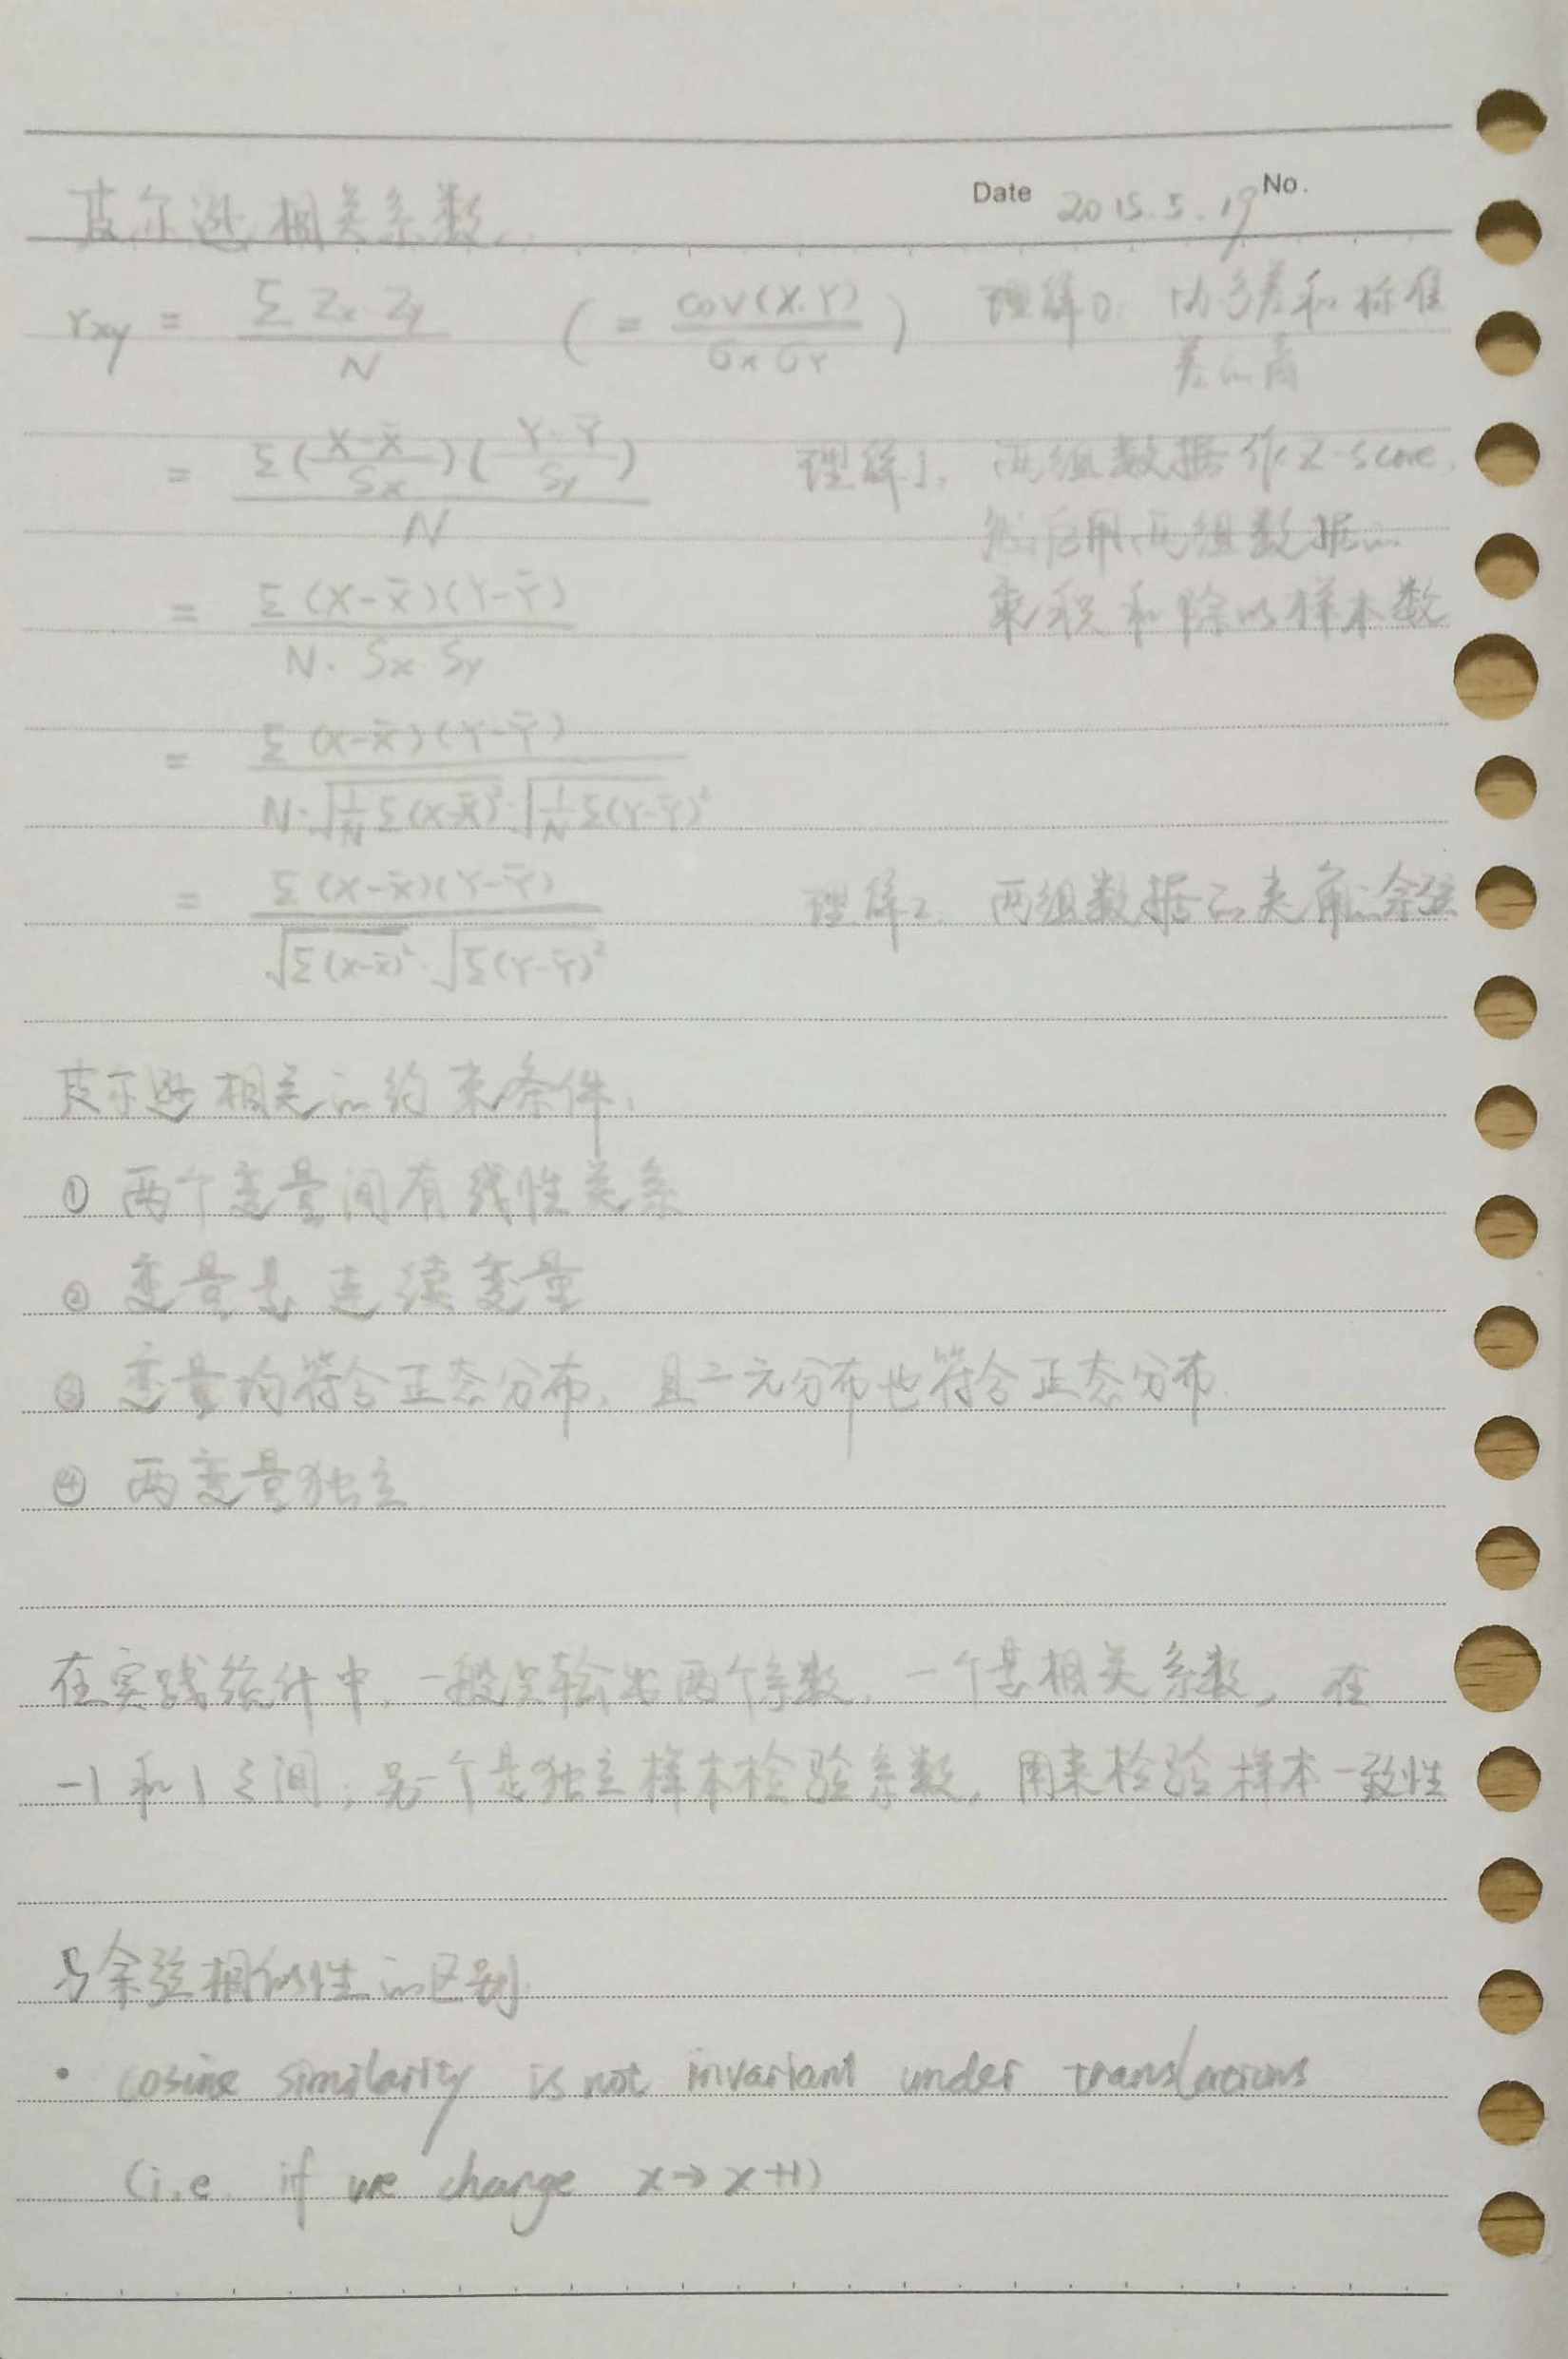 Date 2015.5.19 No.
皮尔逊相关系数
rxy = Σ Zx Zy / N ( = cov(X,Y) / σx σY ) 理解0: 协方差和标准
差的商
= Σ((X-X̄)/Sx)((Y-Ȳ)/Sy) / N 理解1. 两组数据作Z-score,
然后用两组数据的
= Σ(X-X̄)(Y-Ȳ) / N·Sx·Sy 乘积和除以样本数
= Σ(X-X̄)(Y-Ȳ) / N·√(1/N Σ(X-X̄)²)·√(1/N Σ(Y-Ȳ)²)
= Σ(X-X̄)(Y-Ȳ) / √(Σ(X-X̄)²)·√(Σ(Y-Ȳ)²) 理解2. 两组数据的夹角余弦
皮尔逊相关的约束条件:
① 两个变量间有线性关系
② 变量是连续变量
③ 变量均符合正态分布, 且二元分布也符合正态分布.
④ 两变量独立
在实践统计中, 一般只输出两个系数, 一个是相关系数, 在
-1和1之间; 另一个是独立样本检验系数, 用来检验样本一致性
与余弦相似性的区别
• cosine similarity is not invariant under translations
(i.e. if we change x→x+1)